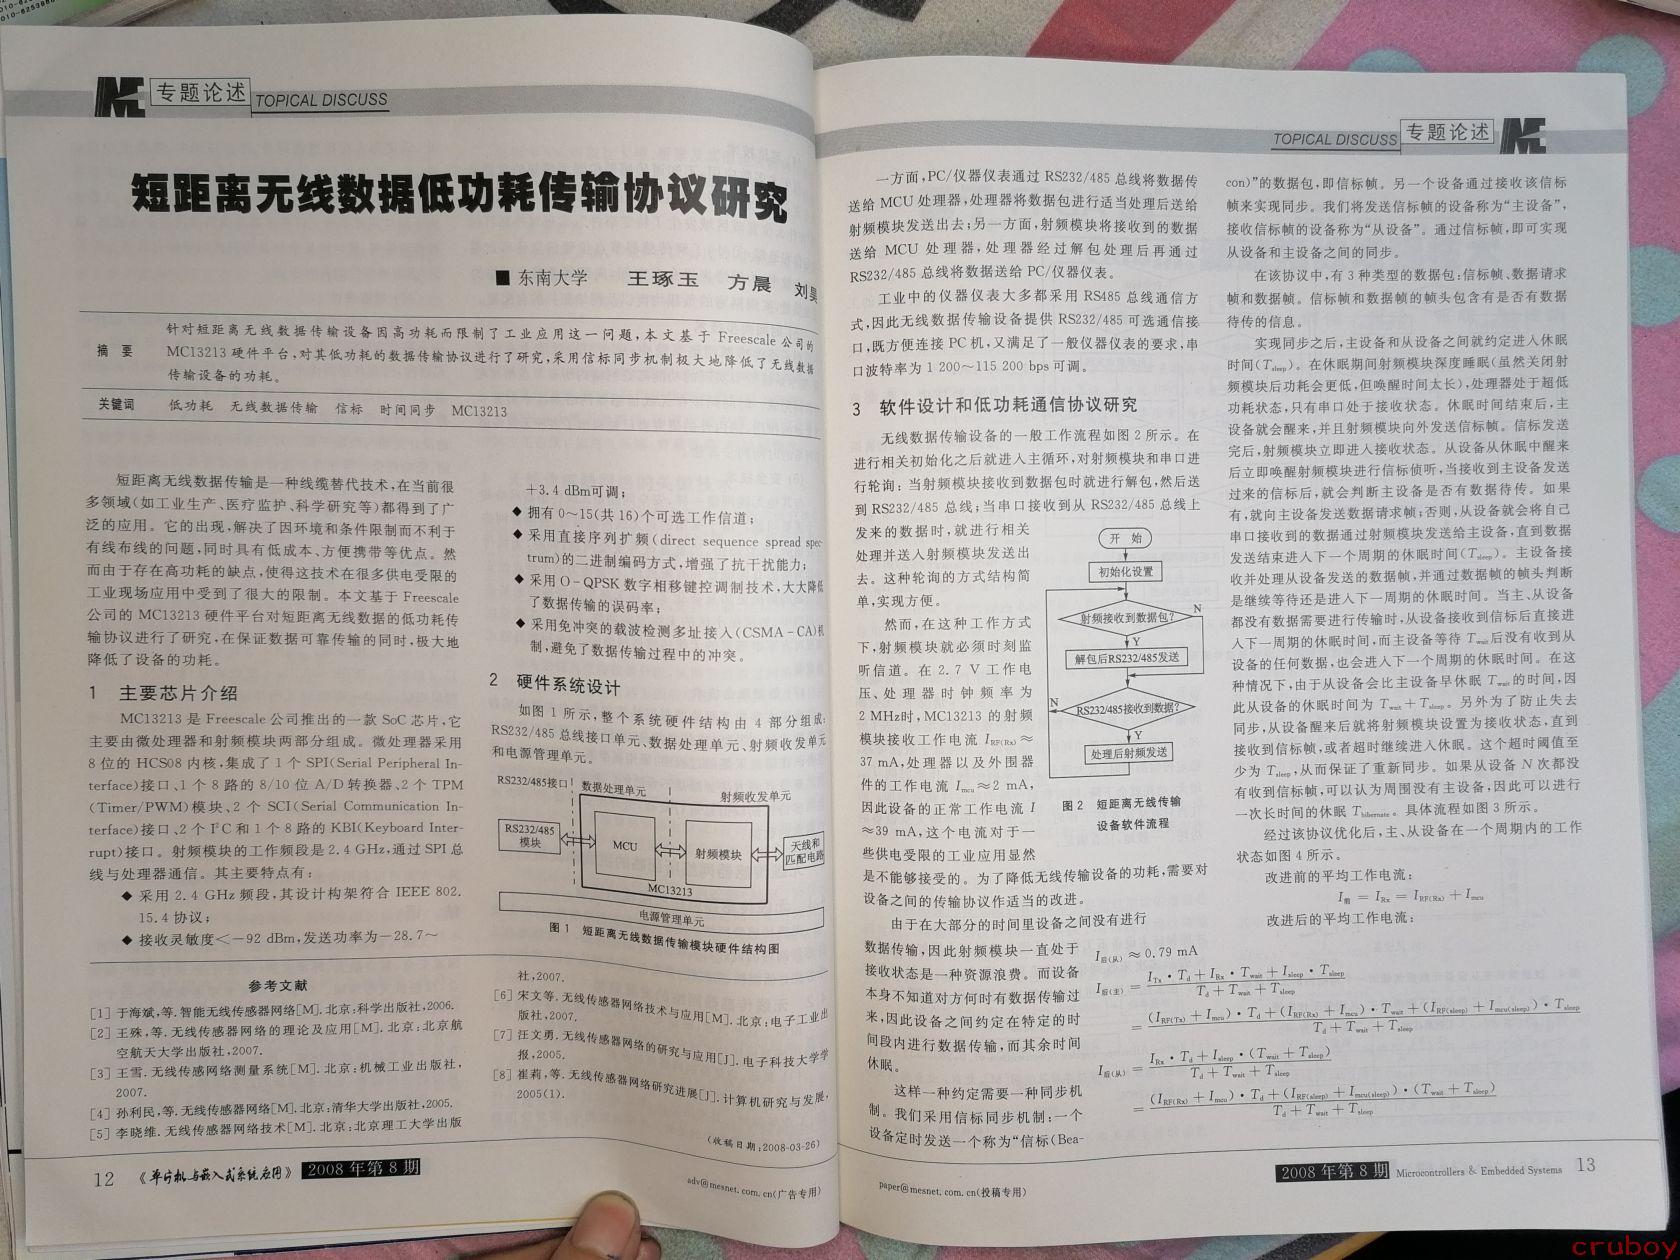 专题论述
TOPICAL DISCUSS
短距离无线数据低功耗传输协议研究
■ 东南大学 王琢玉 方晨 刘昊
摘 要
针对短距离无线数据传输设备因高功耗而限制了工业应用这一问题,本文基于 Freescale 公司的
MC13213 硬件平台,对其低功耗的数据传输协议进行了研究,采用信标同步机制极大地降低了无线数据
传输设备的功耗。
关键词 低功耗 无线数据传输 信标 时间同步 MC13213
短距离无线数据传输是一种线缆替代技术,在当前很
多领域(如工业生产、医疗监护、科学研究等)都得到了广
泛的应用。它的出现,解决了因环境和条件限制而不利于
有线布线的问题,同时具有低成本、方便携带等优点。然
而由于存在高功耗的缺点,使得这技术在很多供电受限的
工业现场应用中受到了很大的限制。本文基于 Freescale
公司的 MC13213 硬件平台对短距离无线数据的低功耗传
输协议进行了研究,在保证数据可靠传输的同时,极大地
降低了设备的功耗。
1 主要芯片介绍
MC13213 是 Freescale 公司推出的一款 SoC 芯片,它
主要由微处理器和射频模块两部分组成。微处理器采用
8 位的 HCS08 内核,集成了 1 个 SPI(Serial Peripheral In-
terface)接口、1 个 8 路的 8/10 位 A/D 转换器、2 个 TPM
(Timer/PWM)模块、2 个 SCI(Serial Communication In-
terface)接口、2 个 I²C 和 1 个 8 路的 KBI(Keyboard Inter-
rupt)接口。射频模块的工作频段是 2.4 GHz,通过 SPI 总
线与处理器通信。其主要特点有:
◆ 采用 2.4 GHz 频段,其设计构架符合 IEEE 802.
15.4 协议;
◆ 接收灵敏度<-92 dBm,发送功率为-28.7~
+3.4 dBm可调;
◆ 拥有 0~15(共 16)个可选工作信道;
◆ 采用直接序列扩频(direct sequence spread spec-
trum)的二进制编码方式,增强了抗干扰能力;
◆ 采用 O-QPSK 数字相移键控调制技术,大大降低
了数据传输的误码率;
◆ 采用免冲突的载波检测多址接入(CSMA-CA)机
制,避免了数据传输过程中的冲突。
2 硬件系统设计
如图 1 所示,整个系统硬件结构由 4 部分组成:
RS232/485 总线接口单元、数据处理单元、射频收发单元
和电源管理单元。
RS232/485接口 数据处理单元 射频收发单元
RS232/485
模块
MCU
射频模块
天线和
匹配电路
MC13213
电源管理单元
图 1 短距离无线数据传输模块硬件结构图
参考文献
[1] 于海斌,等.智能无线传感器网络[M].北京:科学出版社,2006.
[2] 王殊,等.无线传感器网络的理论及应用[M].北京:北京航
空航天大学出版社,2007.
[3] 王雪.无线传感网络测量系统[M].北京:机械工业出版社,
2007.
[4] 孙利民,等.无线传感器网络[M].北京:清华大学出版社,2005.
[5] 李晓维.无线传感器网络技术[M].北京:北京理工大学出版
社,2007.
[6] 宋文等.无线传感器网络技术与应用[M].北京:电子工业出
版社,2007.
[7] 汪文勇.无线传感器网络的研究与应用[J].电子科技大学学
报,2005.
[8] 崔莉,等.无线传感器网络研究进展[J].计算机研究与发展,
2005(1).
(收稿日期:2008-03-26)
12 《单片机与嵌入式系统应用》 2008 年第 8 期
adv@mesnet.com.cn(广告专用)
TOPICAL DISCUSS 专题论述
一方面,PC/仪器仪表通过 RS232/485 总线将数据传
送给 MCU 处理器,处理器将数据包进行适当处理后送给
射频模块发送出去;另一方面,射频模块将接收到的数据
送给 MCU 处理器,处理器经过解包处理后再通过
RS232/485 总线将数据送给 PC/仪器仪表。
工业中的仪器仪表大多都采用 RS485 总线通信方
式,因此无线数据传输设备提供 RS232/485 可选通信接
口,既方便连接 PC 机,又满足了一般仪器仪表的要求,串
口波特率为 1 200~115 200 bps 可调。
3 软件设计和低功耗通信协议研究
无线数据传输设备的一般工作流程如图 2 所示。在
进行相关初始化之后就进入主循环,对射频模块和串口进
行轮询:当射频模块接收到数据包时就进行解包,然后送
到 RS232/485 总线;当串口接收到从 RS232/485 总线上
发来的数据时,就进行相关
处理并送入射频模块发送出
去。这种轮询的方式结构简
单,实现方便。
然而,在这种工作方式
下,射频模块就必须时刻监
听信道。在 2.7 V 工作电
压、处理器时钟频率为
2 MHz时,MC13213 的射频
模块接收工作电流 I_RF(Rx)≈
37 mA,处理器以及外围器
件的工作电流 I_mcu≈2 mA,
因此设备的正常工作电流 I
≈39 mA,这个电流对于一
些供电受限的工业应用显然
是不能够接受的。为了降低无线传输设备的功耗,需要对
设备之间的传输协议作适当的改进。
开 始
初始化设置
射频接收到数据包?
N
Y
解包后RS232/485发送
RS232/485接收到数据?
N
Y
处理后射频发送
图 2 短距离无线传输
设备软件流程
由于在大部分的时间里设备之间没有进行
数据传输,因此射频模块一直处于
接收状态是一种资源浪费。而设备
本身不知道对方何时有数据传输过
来,因此设备之间约定在特定的时
间段内进行数据传输,而其余时间
休眠。
这样一种约定需要一种同步机
制。我们采用信标同步机制:一个
设备定时发送一个称为“信标(Bea-
con)”的数据包,即信标帧。另一个设备通过接收该信标
帧来实现同步。我们将发送信标帧的设备称为“主设备”,
接收信标帧的设备称为“从设备”。通过信标帧,即可实现
从设备和主设备之间的同步。
在该协议中,有 3 种类型的数据包:信标帧、数据请求
帧和数据帧。信标帧和数据帧的帧头包含有是否有数据
待传的信息。
实现同步之后,主设备和从设备之间就约定进入休眠
时间(T_sleep)。在休眠期间射频模块深度睡眠(虽然关闭射
频模块后功耗会更低,但唤醒时间太长),处理器处于超低
功耗状态,只有串口处于接收状态。休眠时间结束后,主
设备就会醒来,并且射频模块向外发送信标帧。信标发送
完后,射频模块立即进入接收状态。从设备从休眠中醒来
后立即唤醒射频模块进行信标侦听,当接收到主设备发送
过来的信标后,就会判断主设备是否有数据待传。如果
有,就向主设备发送数据请求帧;否则,从设备就会将自己
串口接收到的数据通过射频模块发送给主设备,直到数据
发送结束进入下一个周期的休眠时间(T_sleep)。主设备接
收并处理从设备发送的数据帧,并通过数据帧的帧头判断
是继续等待还是进入下一周期的休眠时间。当主、从设备
都没有数据需要进行传输时,从设备接收到信标后直接进
入下一周期的休眠时间,而主设备等待 T_wait后没有收到从
设备的任何数据,也会进入下一个周期的休眠时间。在这
种情况下,由于从设备会比主设备早休眠 T_wait的时间,因
此从设备的休眠时间为 T_wait+T_sleep。另外为了防止失去
同步,从设备醒来后就将射频模块设置为接收状态,直到
接收到信标帧,或者超时继续进入休眠。这个超时阈值至
少为 T_sleep,从而保证了重新同步。如果从设备 N 次都没
有收到信标帧,可以认为周围没有主设备,因此可以进行
一次长时间的休眠 T_hibernate。具体流程如图 3 所示。
经过该协议优化后,主、从设备在一个周期内的工作
状态如图 4 所示。
改进前的平均工作电流:
I_前 = I_Rx = I_RF(Rx) + I_mcu
改进后的平均工作电流:
I_后(从) ≈ 0.79 mA
I_后(主) = (I_Tx · T_d + I_Rx · T_wait + I_sleep · T_sleep) / (T_d + T_wait + T_sleep)
= ((I_RF(Tx) + I_mcu) · T_d + (I_RF(Rx) + I_mcu) · T_wait + (I_RF(sleep) + I_mcu(sleep)) · T_sleep) / (T_d + T_wait + T_sleep)
I_后(从) = (I_Rx · T_d + I_sleep · (T_wait + T_sleep)) / (T_d + T_wait + T_sleep)
= ((I_RF(Rx) + I_mcu) · T_d + (I_RF(sleep) + I_mcu(sleep)) · (T_wait + T_sleep)) / (T_d + T_wait + T_sleep)
paper@mesnet.com.cn(投稿专用)
2008 年第 8 期 Microcontrollers & Embedded Systems 13
cruboy